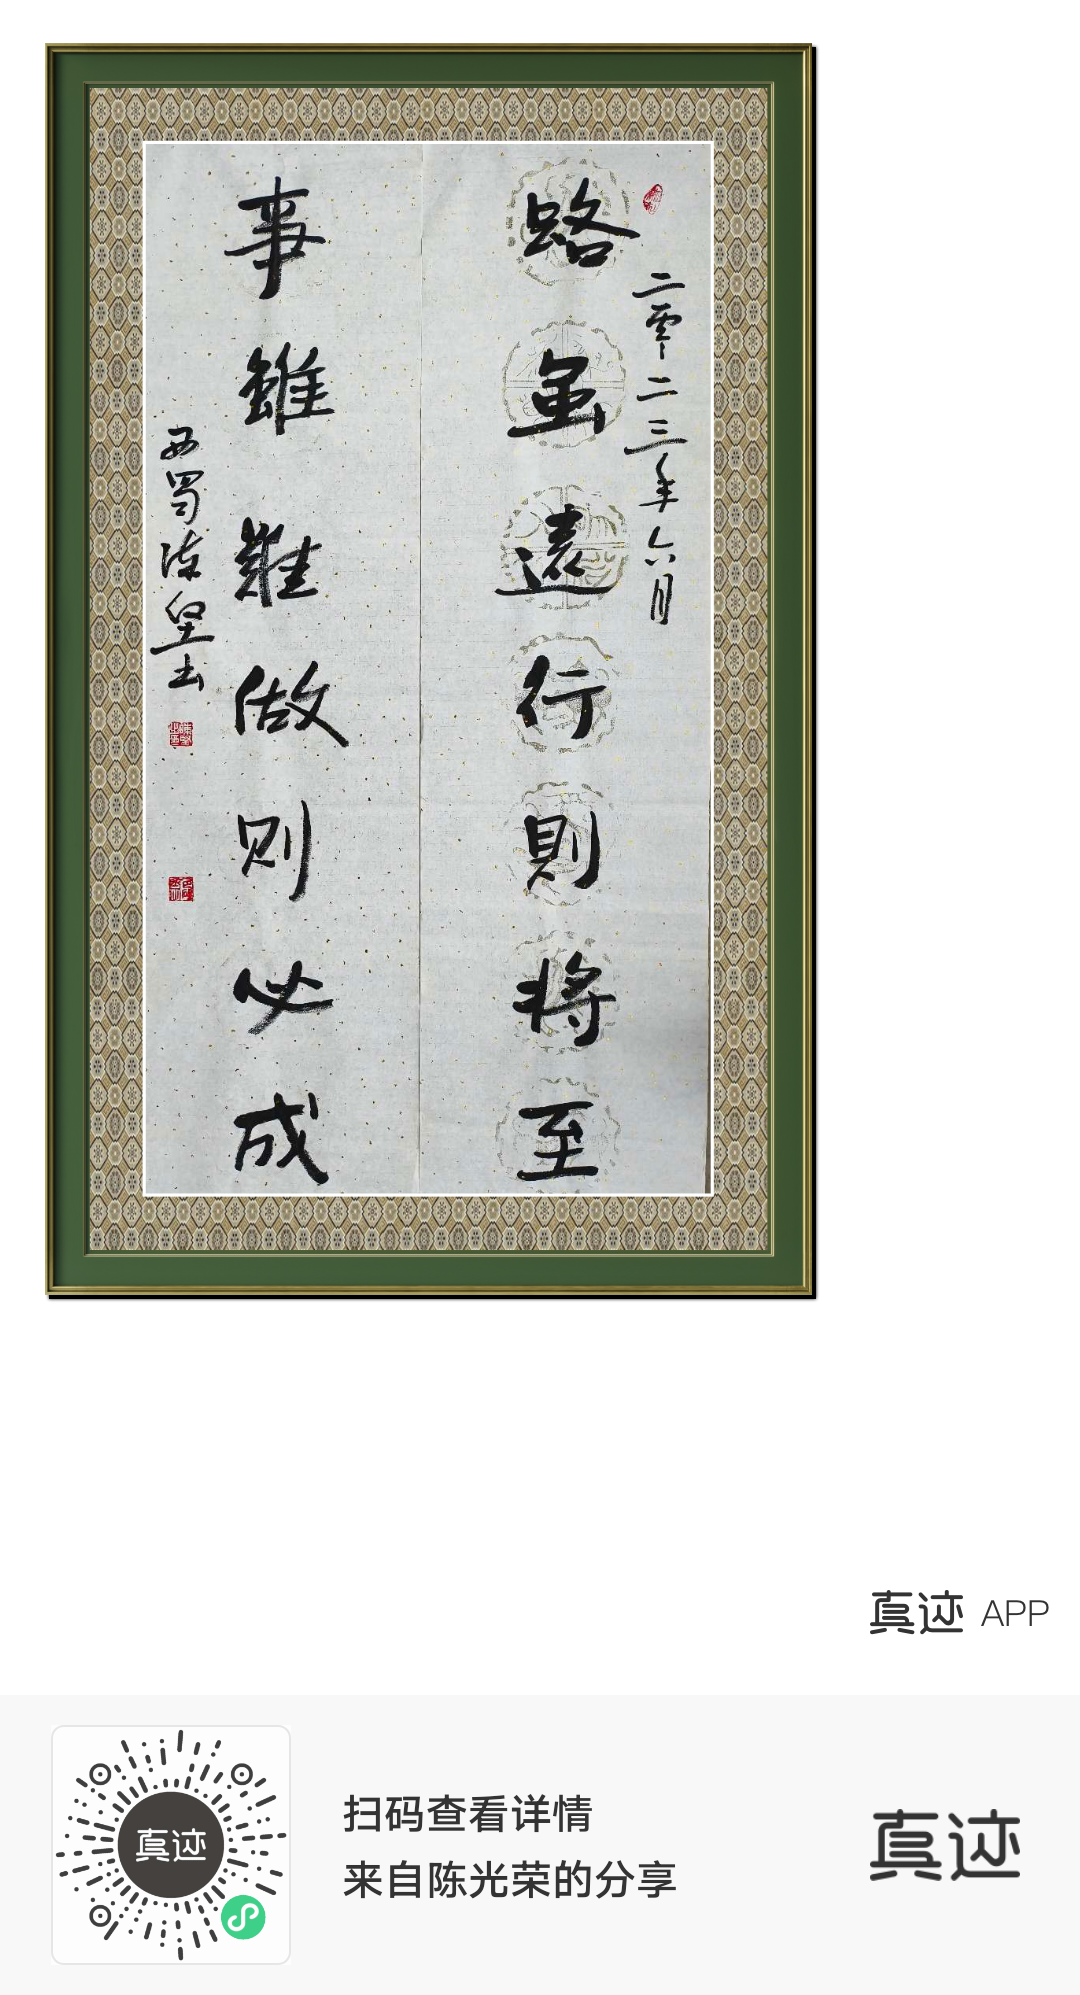 路虽遠行則将至
二零二三年六月
事雖難做则必成
西蜀
真迹 APP
真迹
扫码查看详情
来自陈光荣的分享
真迹